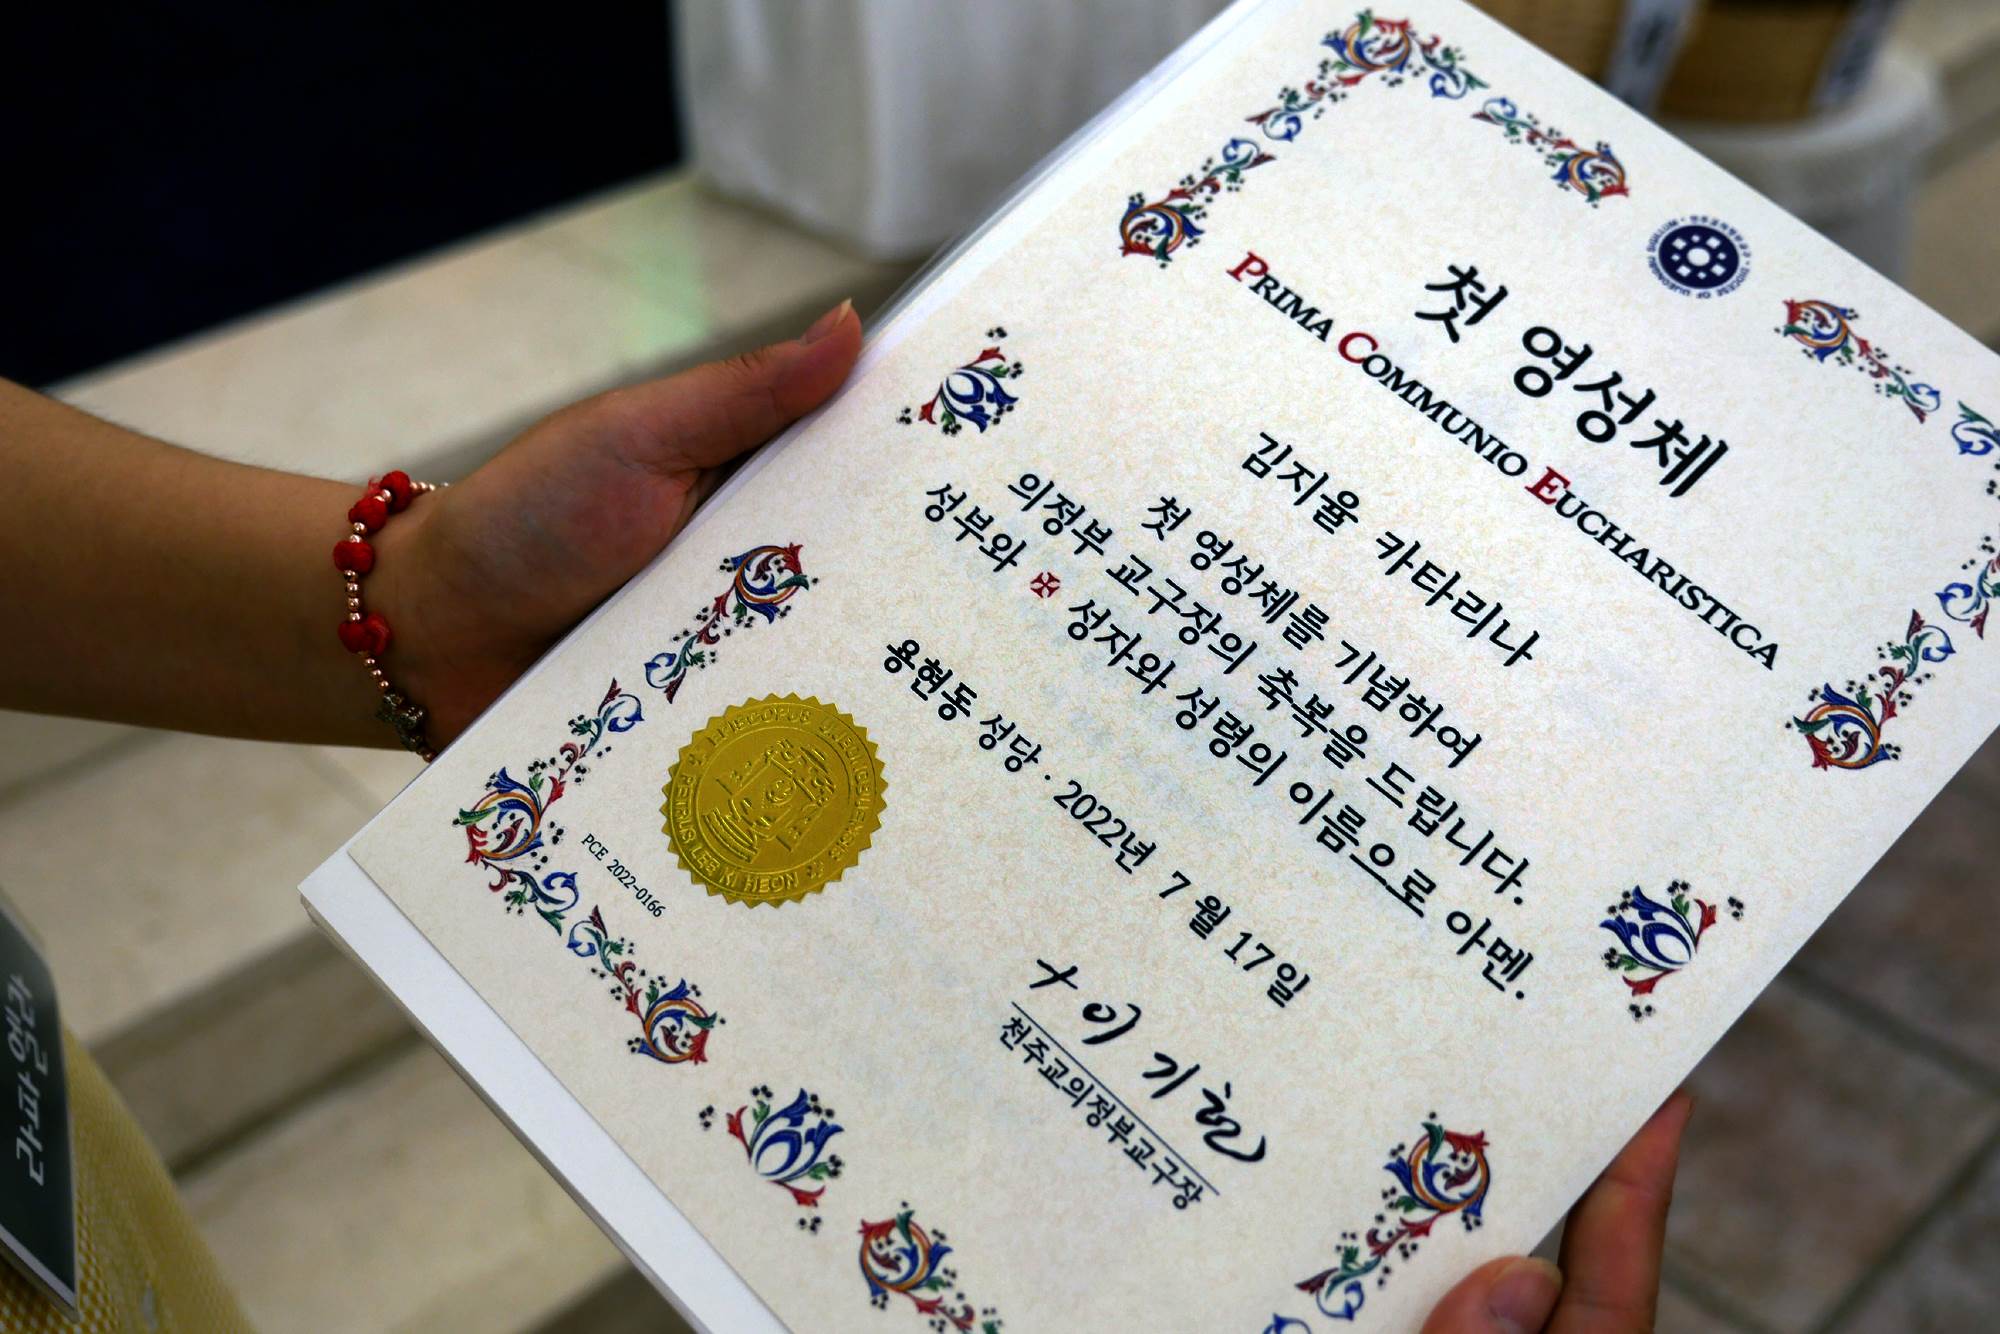 첫 영성체
PRIMA COMMUNIO EUCHARISTICA
김지율 카타리나
첫 영성체를 기념하여
의정부 교구장의 축복을 드립니다.
성부와 ✠ 성자와 성령의 이름으로 아멘.
용현동 성당 · 2022년 7월 17일
이기헌
천주교의정부교구장
EPISCOPUS UIJEONGBUENSIS
PETRUS LEE KI HEON
PCE 2022-0166
DIOCESE OF UIJEONGBU SIGILLUM